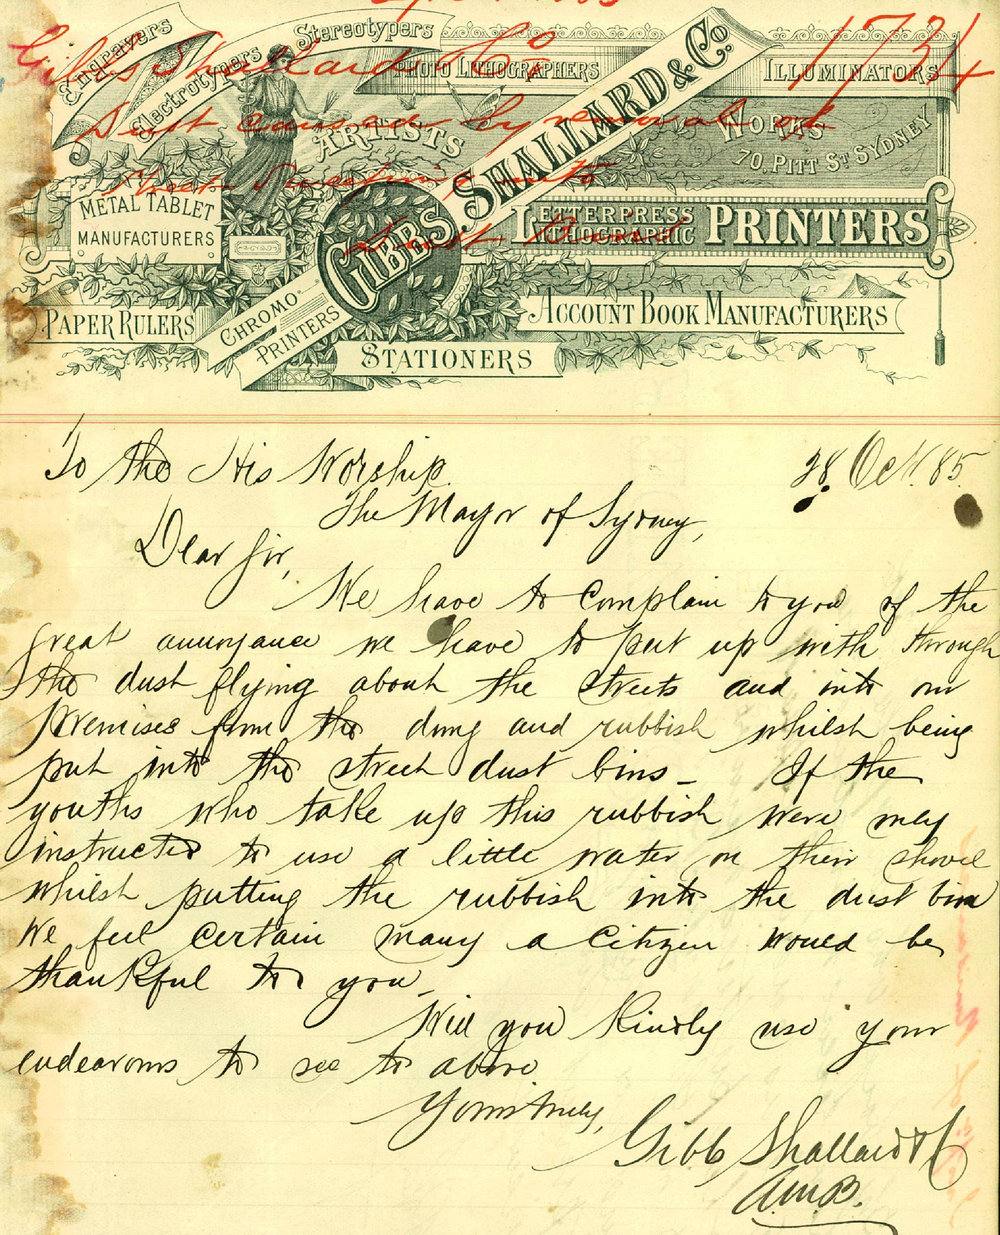 Engravers
Electrotypers
Stereotypers
Photo Lithographers
Illuminators
Artists
Works
70, Pitt St Sydney
Gibbs, Shallard & Co
Metal Tablet
Manufacturers
Letterpress
Lithographic
Printers
Paper Rulers
Chromo-
Printers
Account Book Manufacturers
Stationers
1734
Gibbs Shallard & Co
Dust caused by removal of
Street Sweepings into
Dust Bins
To the His Worship
28 Oct. 85.
The Mayor of Sydney,
Dear Sir,
We have to complain to you of the
great annoyance we have to put up with through
the dust flying about the streets and into our
premises from the dung and rubbish whilst being
put into the street dust bins_ If the
youths who take up this rubbish were
instructed to use a little water on their shovel
whilst putting the rubbish into the dust bin
We feel certain many a citizen would be
thankful to you
Will you kindly use your
endeavours to see to above
Yours truly,
Gibbs Shallard & Co
A.M.B.